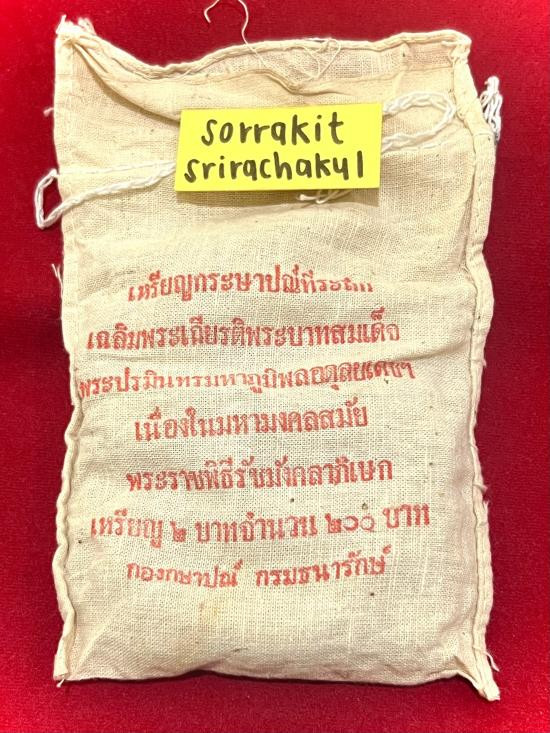 sorrakit
srirachakul
เหรียญกระษาปณ์ที่ระลึก
เฉลิมพระเกียรติพระบาทสมเด็จ
พระปรมินทรมหาภูมิพลอดุลยเดชฯ
เนื่องในมหามงคลสมัย
พระราชพิธีรัชมังคลาภิเษก
เหรียญ ๒ บาทจำนวน ๒๐๐ บาท
กองกษาปณ์ กรมธนารักษ์